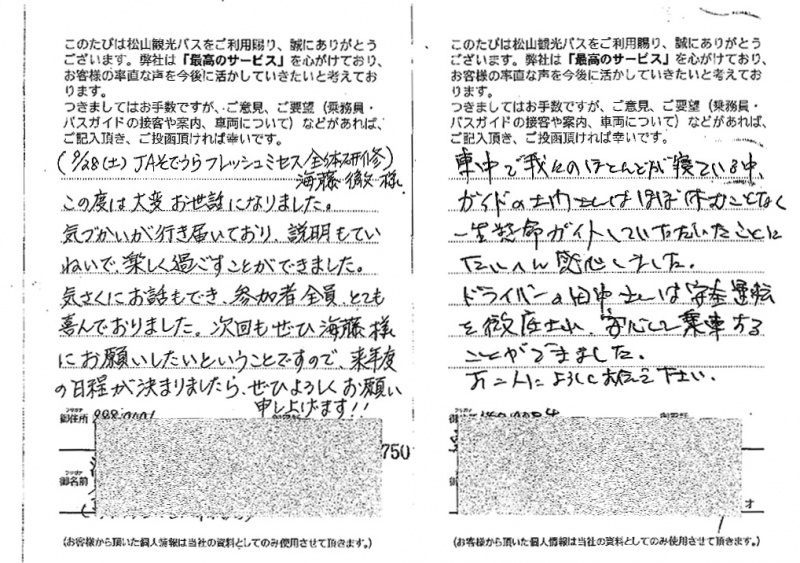 このたびは松山観光バスをご利用賜り、誠にありがとう
ございます。弊社は「最高のサービス」を心がけており、
お客様の率直な声を今後に活かしていきたいと考えてお
ります。
つきましてはお手数ですが、ご意見、ご要望（乗務員・
バスガイドの接客や案内、車両について）などがあれば、
ご記入頂き、ご投函頂ければ幸いです。
(9/28(土) JAそでうらフレッシュミセス全体研修)
海藤 徹 様
この度は大変お世話になりました。
気づかいが行き届いており、説明もてい
ねいで、楽しく過ごすことができました。
気さくにお話もでき、参加者全員、とても
喜んでおりました。次回もぜひ海藤様
にお願いしたいということですので、来年度
の日程が決まりましたら、ぜひよろしくお願い
申し上げます!!
フリガナ
御住所
750
フリガナ
御名前
(お客様から頂いた個人情報は当社の資料としてのみ使用させて頂きます。)
このたびは松山観光バスをご利用賜り、誠にありがとう
ございます。弊社は「最高のサービス」を心がけており、
お客様の率直な声を今後に活かしていきたいと考えてお
ります。
つきましてはお手数ですが、ご意見、ご要望（乗務員・
バスガイドの接客や案内、車両について）などがあれば、
ご記入頂き、ご投函頂ければ幸いです。
車中で我々のほとんどが寝ている中、
ガイドの さんはほぼ休むことなく
一生懸命ガイドしていただいたことに
たいへん感心しました。
ドライバーの田中さんは安全運転
を徹底され、安心して乗車する
ことができました。
お二人によろしくお伝え下さい。
フリガナ
御
御
オ
(お客様から頂いた個人情報は当社の資料としてのみ使用させて頂きます。)